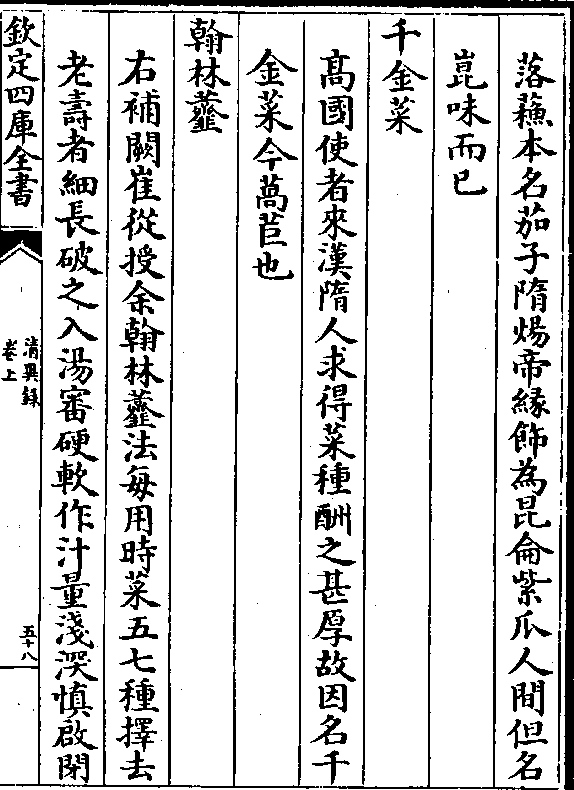 落蘓本名茄子隋煬帝緣飾為昆侖紫瓜人間但名
崑味而已
千金菜
髙國使者來漢隋人求得菜種酬之甚厚故因名千
金菜今萵苣也
翰林虀
右補闕崔從授余翰林虀法每用時菜五七種擇去
老壽者細長破之入湯審硬軟作汁量淺深慎啟閉
欽定四庫全書
清異錄
卷上
五十八